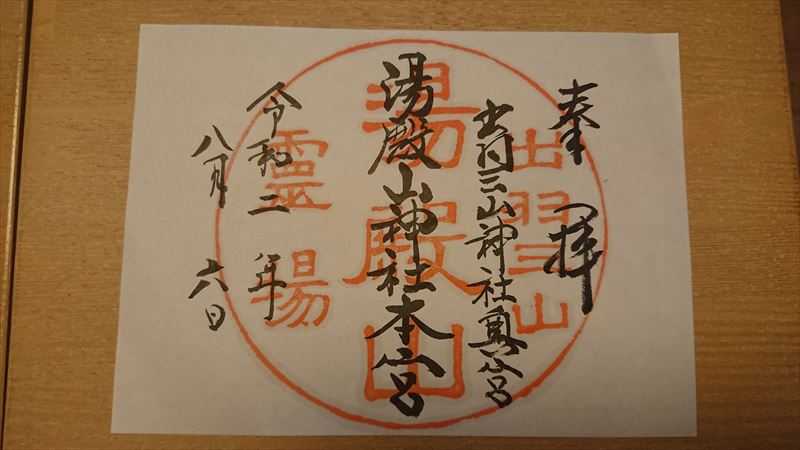 奉拝
出羽三山神社奥宮
湯殿山神社本宮
令和二年
八月六日
出羽三山
湯殿山
靈場